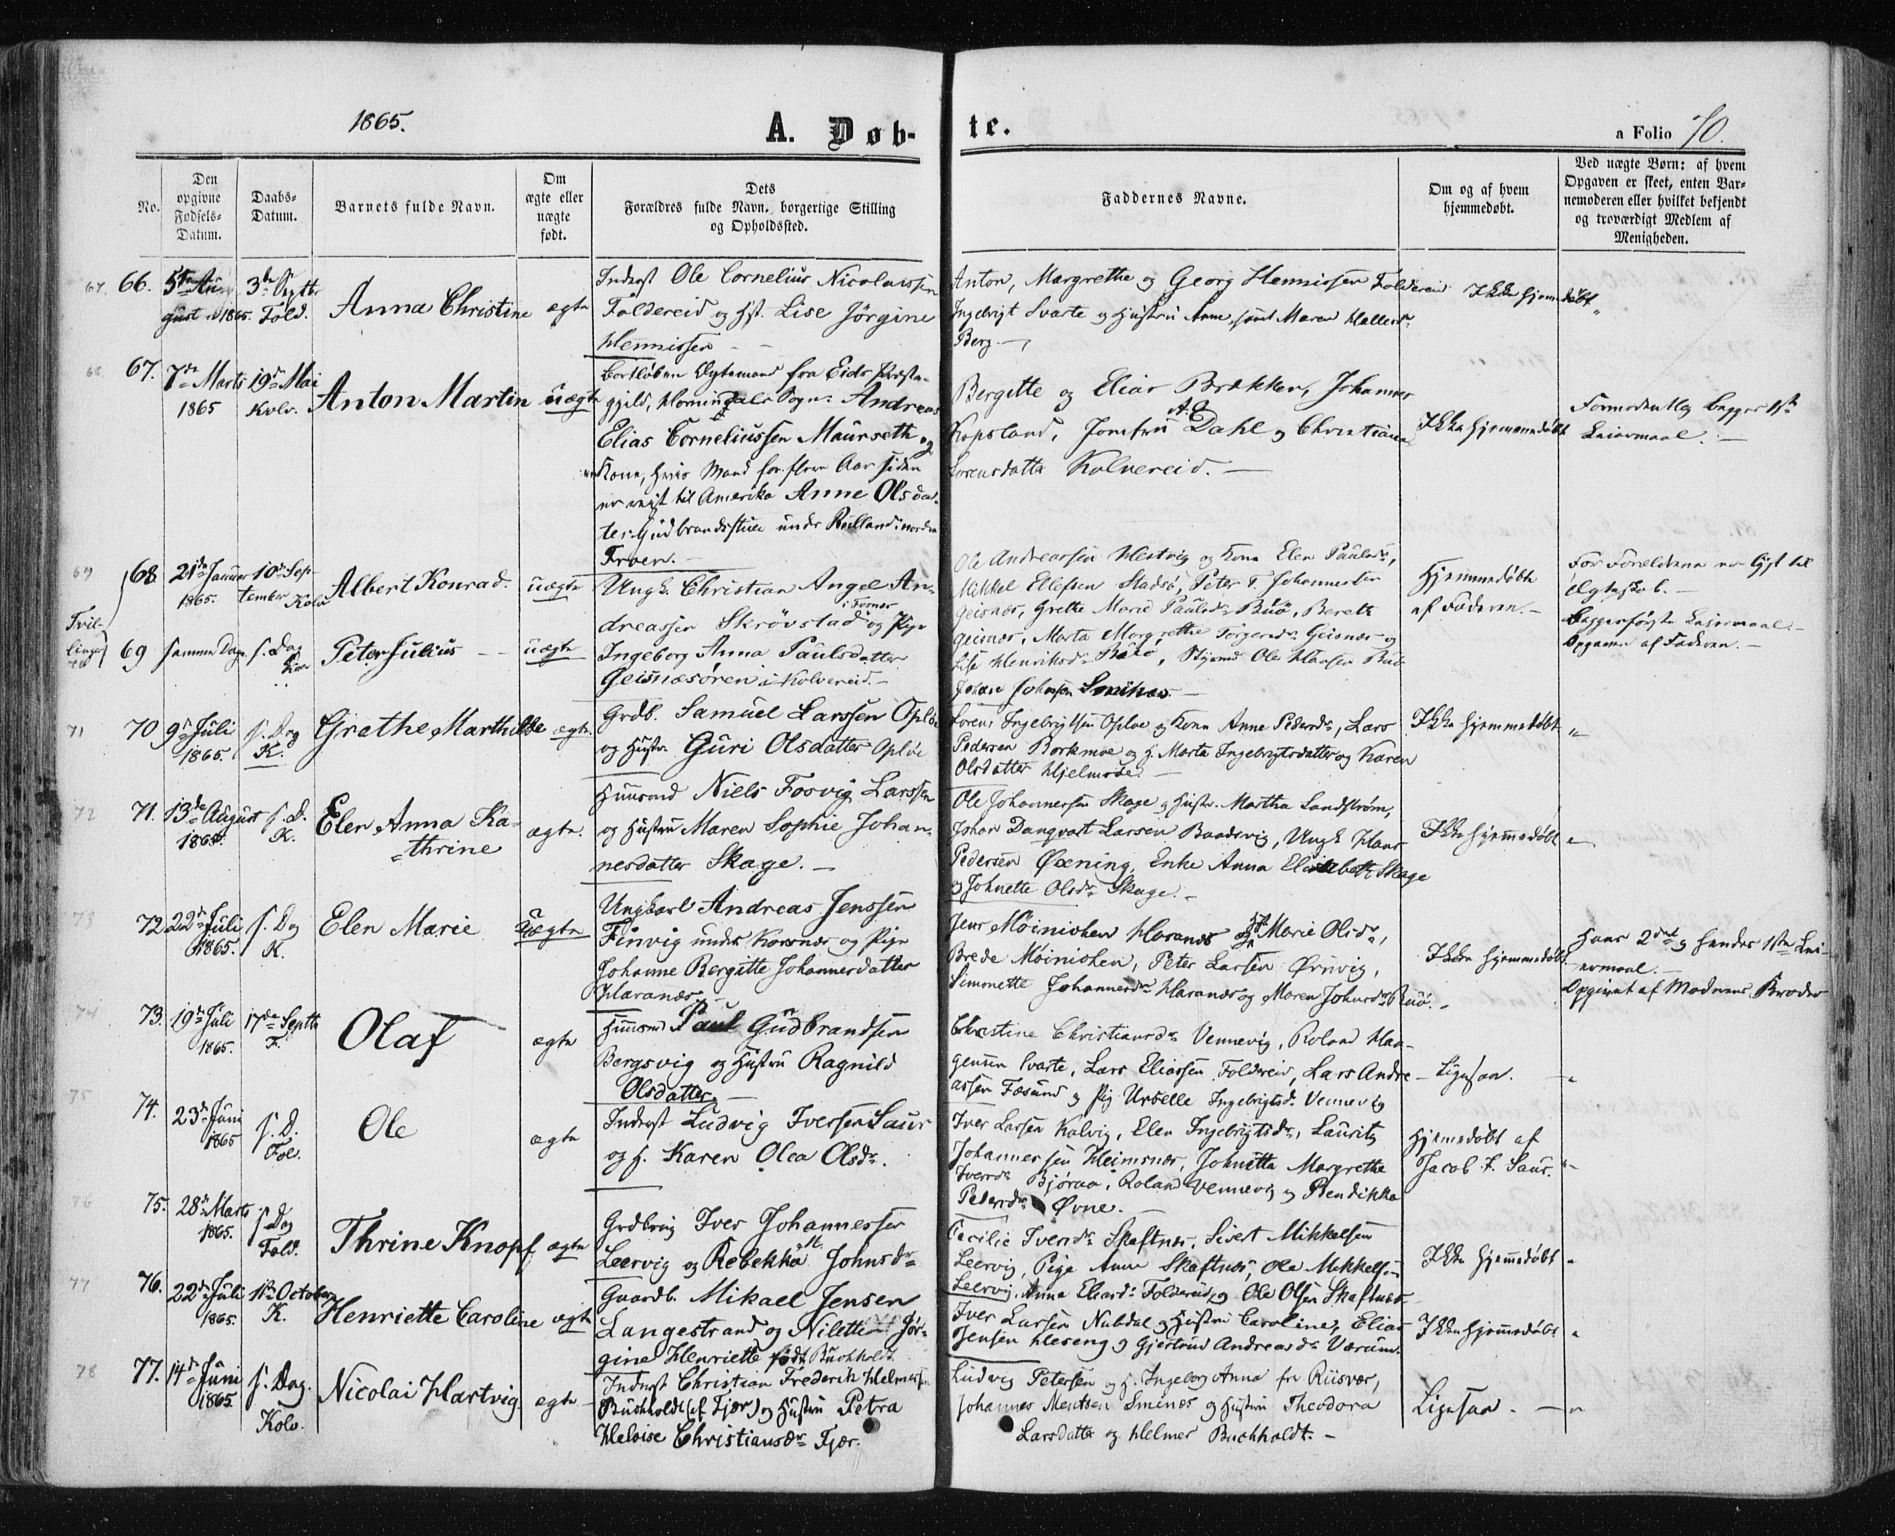 1865.
A. Døb-
te.
a Folio 70.
No.
Den opgivne Fødsels-Datum.
Daabs-Datum.
Barnets fulde Navn.
Om ægte eller uægte født.
Dets Forældres fulde Navn, borgertige Stilling og Opholdssted.
Faddernes Navne.
Om og af hvem hjemmedøbt.
Ved uægte Børn: af hvem Opgaven er skeet, enten Bar-nemoderen eller hvilket bekjendt og troværdigt Medlem af Menigheden.
67.
66. 5te Au-
gust 1865.
3de Septbr
Fold.
Anna Christine
ægte
Inderst Ole Cornelius Nicolaissen
Foldereid og Hst. Lise Jørgine
Hennissen
Anton, Margrethe og Georg Hennissen Foldereid
Ingebrigt Svarte og Hustru Anne, samt Maren Hallesd.
Berg.
Ikke hjemmedøbt
68
67. 7de Marts
1865
19de Mai
Kolv.
Anton Martin
uægte
Bortløben Ægtemand fra Eids Præste-
gjeld, Hornindals Sogn: Andreas
Elias Corneliussen Maurseth og
Kone, hvis Mand for flere Aar siden
er reist til Amerika Anne Olsdat-
ter Gudbrandsstuen under
Troen.
Bergitte og Elias Brækken, Johannes
Kopsland, Jomfru A. C. Dahl og Christiana
Lorensdatter Kolvereid.
Ikke hjemmedøbt
Formodentlig begges 1ste
Leiermaal.
69
Tvil-
linger
70
68 21de Januar
1865.
10de Sep-
tember Kolv
Albert Konrad
uægte
Ungk. Christian Angel An-
dreassen Skrøvstad i Fosnes og Pige
Ingeborg Anna Paulsdatter
Geisnæsøren i Kolvereid.
69 samme Dag
s. Dag
Kolv
Peter Julius
uægte
Ole Andreassen Hestvig og Kone Elen Paulsd.,
Mikkel Ellefsen Stadsø, Peter T. Johannessen
Geisnæs, Grethe Marie Paulsd. Buø, Bereth
Geisnæs, Marta Margrethe Torgersd. Geisnæs og
Lise Henriksd. Buø, Styrmd Ole Hansen Buø
Johan Johnsen Smines
Hjemmedøbte
af Faderen.
For Forældrene er lyst til
Ægteskab.
Begges første Leiermaal.
Opgivne af Faderen.
71
70 9de Juli
1865.
s. Dag
K.
Grethe Marthilde
ægte
Grdb. Samuel Larssen Opløe
og Hustru Guri Olsdatter Opløe
Lorens Ingebrigtsen Opløe og Kone Anne Pedersd., Lars
Pedersen Borkmoe og H. Marta Ingebrigtsdatter og Karen
Olsdatter Hjelmseth
Ikke hjemmedøbt
72
71. 13de August
1865.
s. D.
K.
Elen Anna Ka-
thrine
ægte.
Huusmd Niels Fosvig Larssen
og Hustru Maren Sophie Johan-
nesdatter Skage.
Ole Johannessen Skage og Hustr. Martha Sandstrøm,
Johan Danqvart Larsen Baadsvig, Ungk. Hans
Pedersen Øxning, Enke Anna Elisabeth Skage
og Johnette Olsd. Skage.
Ikke hjemmedøbt
73
72 22de Juli
1865.
s. Dag
K.
Elen Marie
uægte
Ungkarl Andreas Jenssen
Finvig under Korsnæs og Pige
Johanne Bergitte Johannesdatter
Haranæs.
Jens Møinichen Haranæs og Marie Olsd.,
Brede Møinichen, Peter Larsen Ørsvig,
Simonette Johannesd. Haranæs og Maren Johnsd. Buø.
Ikke hjemmedøbt.
Hans 2det og hendes 1ste Lei-
ermaal.
Opgivet af Moderens Broder
74
73. 19de Juli
1865.
17de Septbr
F.
Olaf
ægte
Huusmd Paul Gudbrandsen
Bergsvig og Hustru Ragnild
Olsdatter
Christine Christiansd. Vennevig, Roland Haa-
gensen Svarte, Lars Eliassen Foldereid, Lars Andre-
assen Fæsund og Pig Urselle Ingebrigtsd. Vennevig
Ligesaa.
75
74. 23de Juni
1865
s. D.
Fol.
Ole
ægte
Inderst Ludvig Iversen Saur
og H. Karen Olea Olsd.
Iver Larsen Kalvig, Elen Ingebrigtsd., Laurits
Johannessen Heimsnæs, Johnetta Margrethe
Iversd. Bjøraa, Roland Vennevig og Bendikka
Pedersd. Øvne.
Hjemmedøbt af
Jacob I. Saur.
76
75. 28de Marts
1865.
s. Dag
Fold.
Thrine Knopf
ægte
Grdbrug Iver Johannessen
Leervig og Rebekka M. Johnsd.
Cecilie Iversd. Skaftnæs, Sivert Mikkelsen
Leervig, Pige Anne Skaftnæs, Ole Mikkelsen
Leervig, Anna Eliasd. Foldereid og Ole Olsen Skaftnæs
Ikke hjemmedøbt
77
76. 22de Juli
1865.
1ste October
K.
Henriette Caroline
ægte
Gaardb. Mikael Jensen
Langestrand og Nilette Jør-
gine Henriette født Buchholdt.
Iver Larsen Nubdal og Hustru Caroline, Elias
Jensen Heseng og Gjertrud Andreasd. Værum.
Ikke hjemmedøbt
78
77. 14de Juni
1865
s. Dag.
Kolv.
Nicolai Hartvig
ægte
Inderst Christian Frederik Helmersen
Buchholdt (af Fjær) og Hustru Petra
Heloise Christiansdr Fjær.
Ludvig Petersen og H. Ingeborg Anna fra Riisvær,
Johannes Mentsen Sminæs og Hustru Theodora
Larsdatter og Helmer Buchholdt.
Ligesaa.